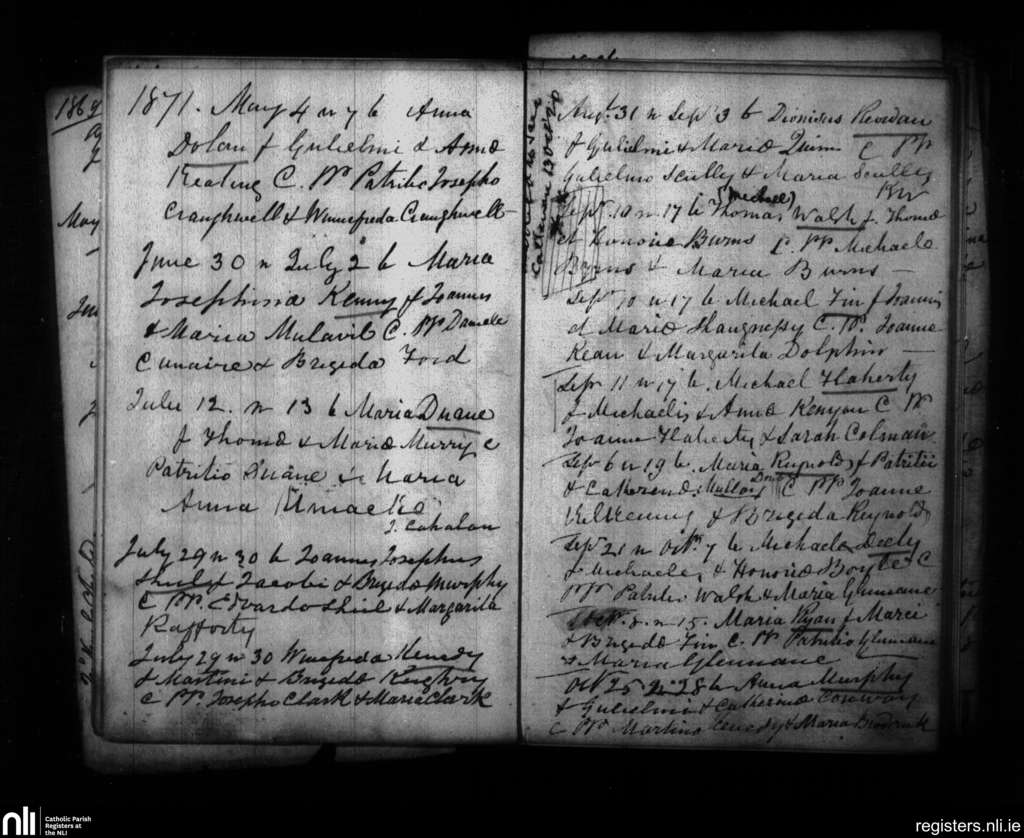 1869
May
1871. May 4 n 7 b Anna
Dolan f Gulielmi & Annæ
Keating C. PP Patritio Josepho
Craughwell & Winnefreda Craughwell
June 30 n July 2 b Maria
Josephina Kenny f Joannes
& Maria Mulavil C. PP Daniele
Cunaire & Brigeda Ford
July 12. n 13 b Maria Duane
f Thomæ & Mariæ Murry C
Patritio Duane & Maria
Anna
J. Cahalan
July 29 n 30 b Joannes Josephus
Shiel f Jacobi & Brigedæ Murphy
C PP. Edvardo Shiel & Margarita
Rafforty
July 29 n 30 Winnefreda Kenedy
f Martini & Brigedæ
C PP. Josepho Clark & Maria Clark
Augt. 31 n Sepr 3 b Dionisius Reordan
f Gulielmi & Mariæ Quinn C PP
Gulielmo Scully & Maria Scully
(Michael)
Sepr. 10 n 17 b Thomas Walsh f. Thomæ
et Honoriæ Burns C. PP Michaele
Burns & Maria Burns
Sepr 10 n 17 b Michael Fin f Joannis
et Mariæ Shaugnessy C. PP. Joanne
Kean & Margarita Dolphin
Sepr 11 n 17 b. Michael Flaherty
f Michaelis & Annæ Kenyon C PP
Joanne Flaherty & Sarah Colman
Sepr 6 n 19 b. Maria Reynolds f Patritii
& Catherenæ C PP Joanne
Kilkenny & Brigeda Reynolds
Sepr 21 n Octr. 7 b Michaele Deely
f Michaelis & Honoriæ Boyle C
PP Patritio Walsh & Maria Glennane
Octr. 8. n 15. Maria Ryan f Marci
& Brigedæ Fin C. PP Patritio Glennane
& Maria Glennane
Oct 25 n 28 b Anna Murphy
f Gulielmi & Catherinæ Conway
C PP Martino Kenedy & Maria Broderick
nli
Catholic Parish
Registers at
the NLI
registers.nli.ie